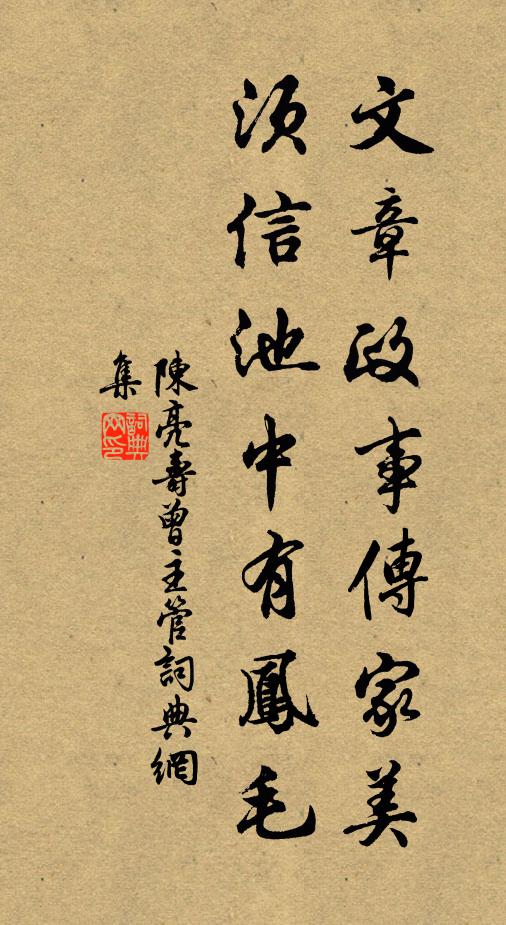 文章政事傳家美
須信池中有鳳毛
陳亮壽曾主管詞典網
集
詞典網印